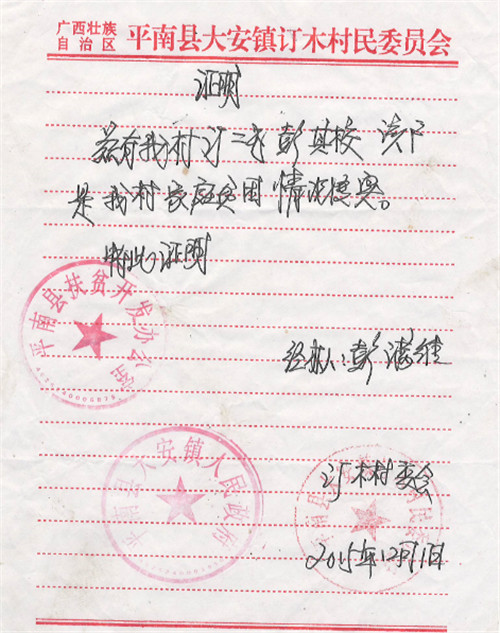 广西壮族
自治区
平南县大安镇订木村民委员会
证明
兹有我村订二屯彭其校
是我村家庭贫困情况属实。
特此证明
平南县扶贫开发办公室
经办人:彭
平南县大安镇人民政府
订木村委会
2015年12月1日